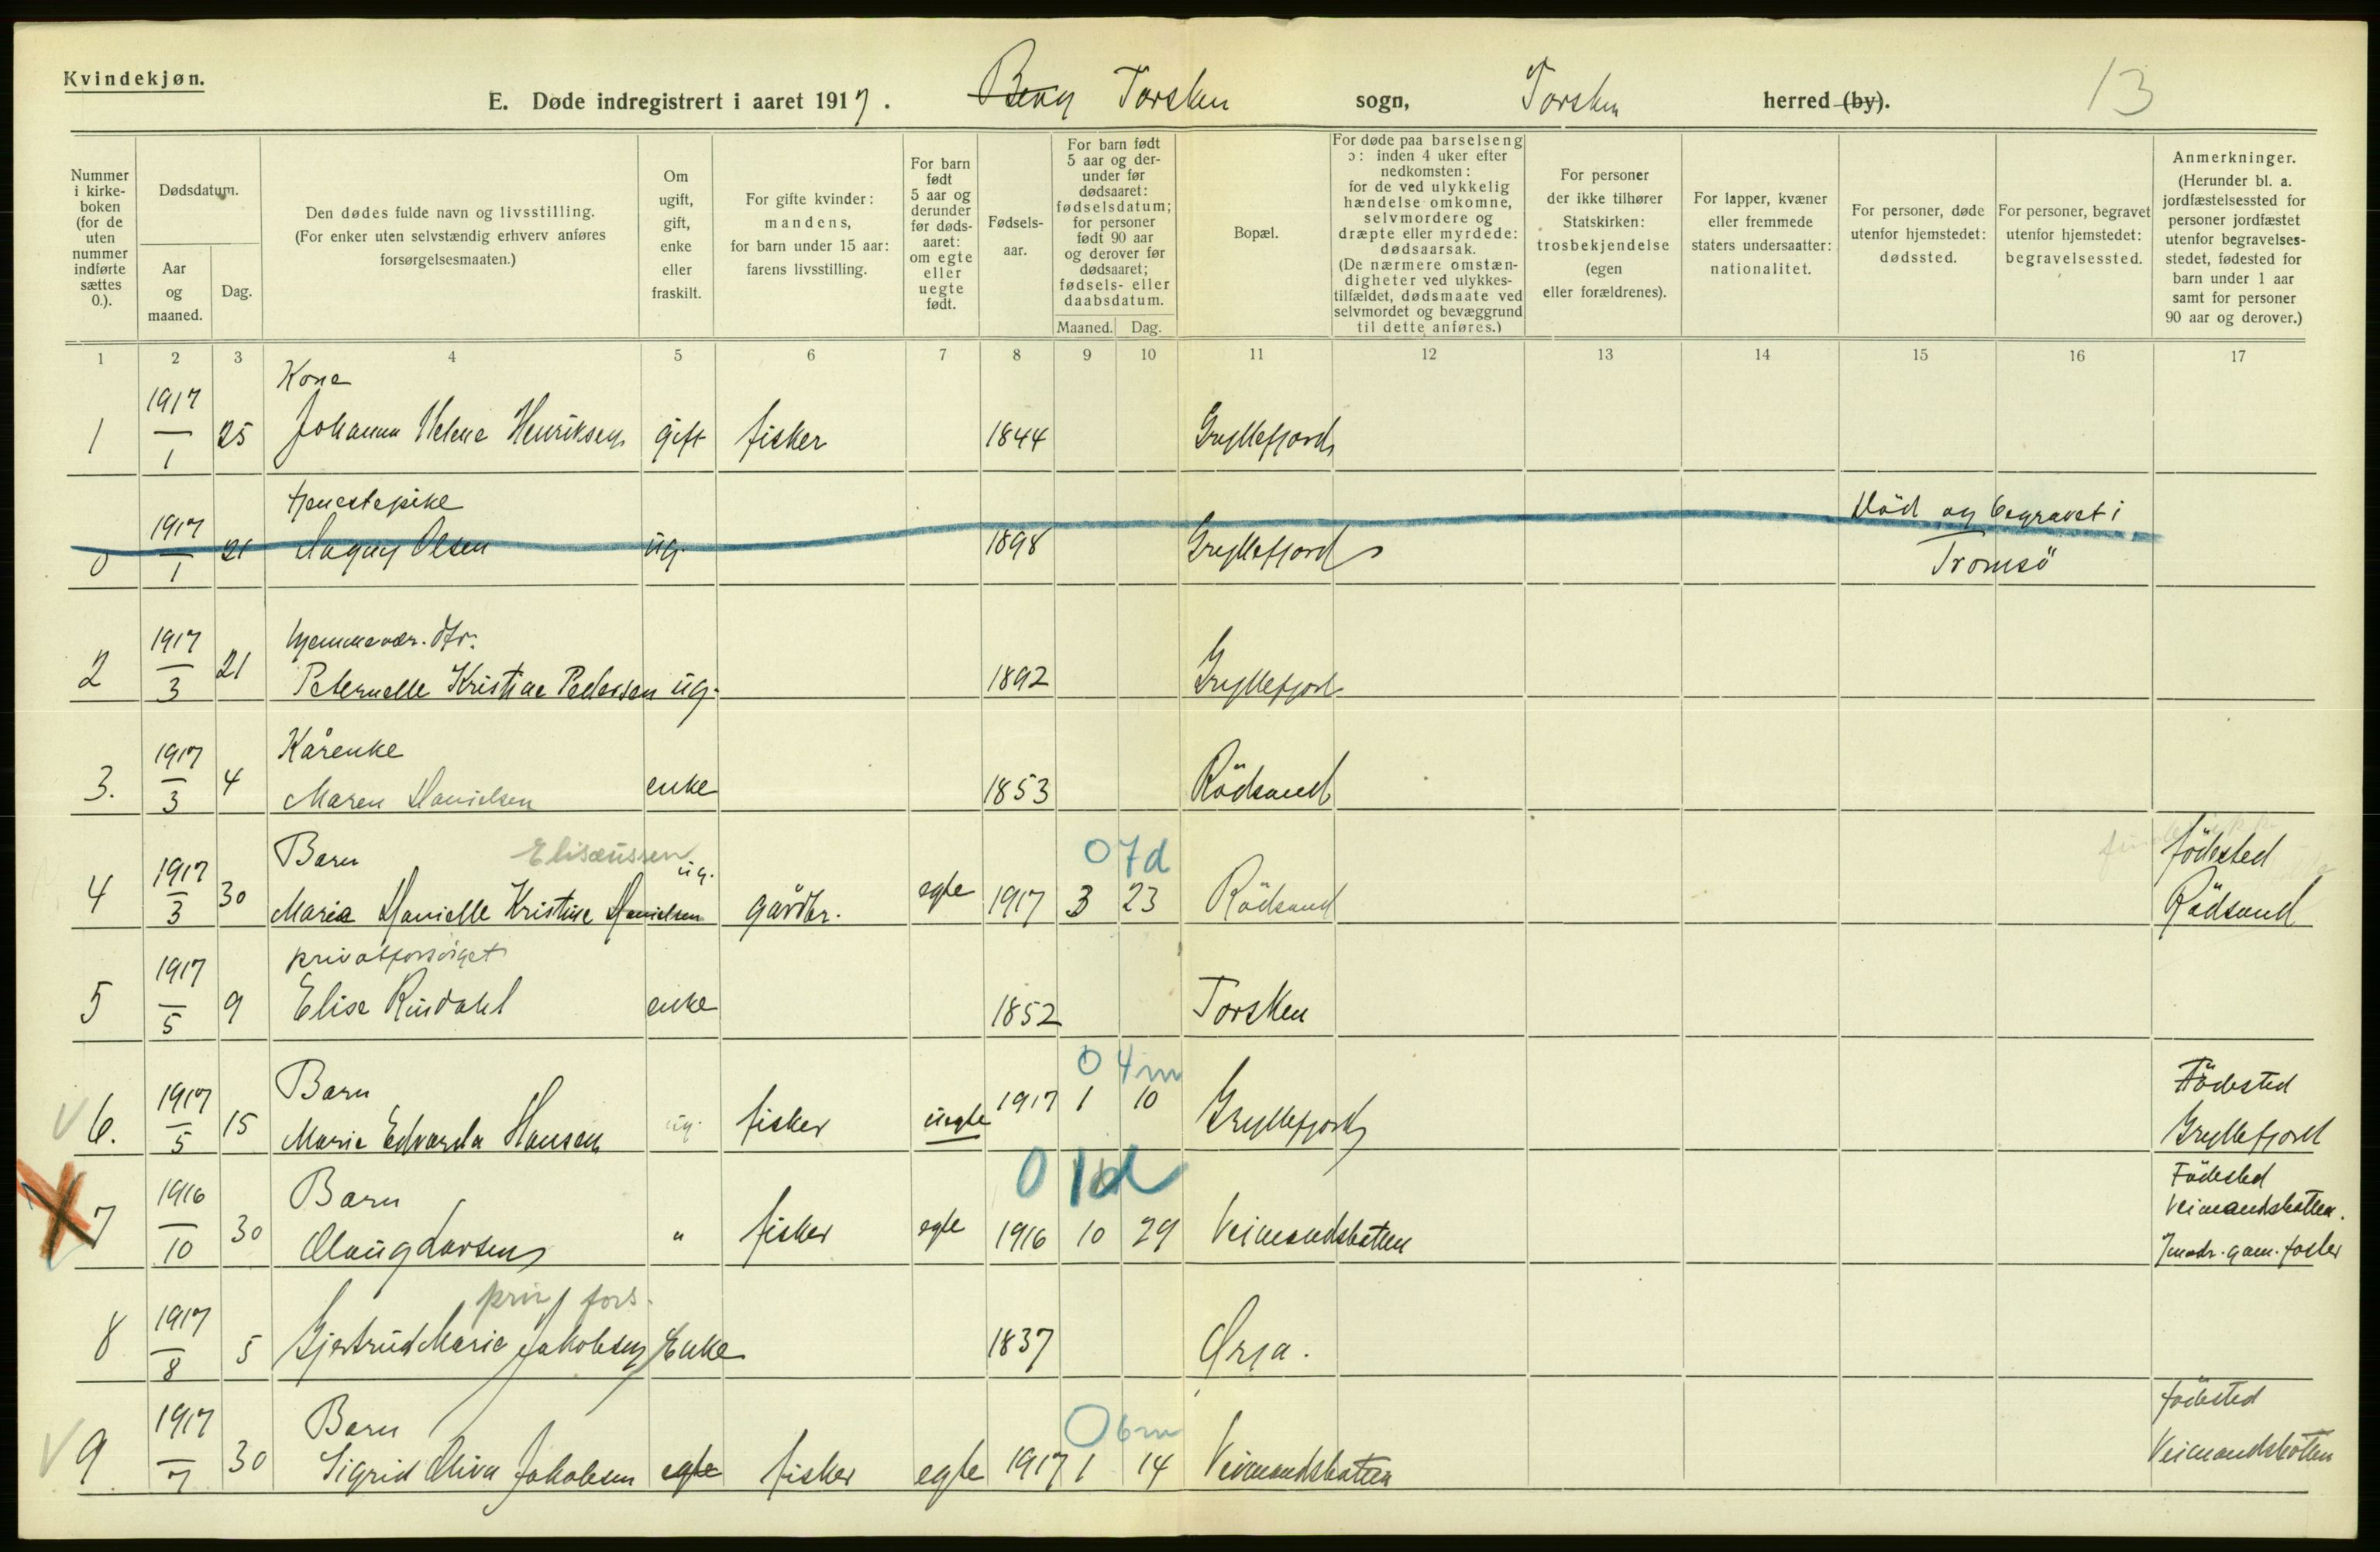 Kvindekjøn.
E. Døde indregistrert i aaret 1917. Berg Torsken sogn, Torsken herred (by). 13
Nummer i kirkeboken (for de uten nummer indførte sættes 0.).
Dødsdatum.
Aar og maaned.
Dag.
Den dødes fulde navn og livsstilling.
(For enker uten selvstændig erhverv anføres forsørgelsesmaaten.)
Om ugift, gift, enke eller fraskilt.
For gifte kvinder: mandens, for barn under 15 aar: farens livsstilling.
For barn født 5 aar og derunder før dødsaaret: om egte eller uegte født.
Fødselsaar.
For barn født 5 aar og derunder før dødsaaret: fødselsdatum; for personer født 90 aar og derover før dødsaaret; fødsels- eller daabsdatum.
Maaned. Dag.
Bopæl.
For døde paa barselseng ɔ: inden 4 uker efter nedkomsten: for de ved ulykkelig hændelse omkomne, selvmordere og dræpte eller myrdede: dødsaarsak.
(De nærmere omstændigheter ved ulykkestilfældet, dødsmaate ved selvmordet og bevæggrund til dette anføres.)
For personer der ikke tilhører Statskirken: trosbekjendelse (egen eller forældrenes).
For lapper, kvæner eller fremmede staters undersaatter: nationalitet.
For personer, døde utenfor hjemstedet: dødssted.
For personer, begravet utenfor hjemstedet: begravelsessted.
Anmerkninger.
(Herunder bl. a. jordfæstelsessted for personer jordfæstet utenfor begravelsesstedet, fødested for barn under 1 aar samt for personer 90 aar og derover.)
1 2 3 4 5 6 7 8 9 10 11 12 13 14 15 16 17
Kone
1 1917/1 25 Johanna Helene Henriksen gift fisker 1844 Gryllefjord
tjenestepike
0 1917/1 21 Dagny Olsen ug. 1898 Gryllefjord Död og begravet i
Tromsö
hjemmevær. dtr.
2 1917/3 21 Peternelle Kristine Pedersen ug. 1892 Gryllefjord
Kårenke
3. 1917/3 4 Maren Danielsen enke 1853 Rödsand
Barn Elisæussen 0 7d födested
4 1917/3 30 Maria Danielle Kristine Danielsen ug. gårdbr. egte 1917 3 23 Rödsand Rödsand
privatforsörget
5 1917/5 9 Elise Rindahl enke 1852 Torsken
Barn 0 4m Födested
6. 1917/5 15 Marie Edvarda Hansen ug. fisker uegte 1917 1 10 Gryllefjord Gryllefjord
Barn 0 1d Födested
Veimandsbotten.
7 1916/10 30 Olaug Larsen " fisker egte 1916 10 29 Veimandsbotten 7 mdr. gam. foster
priv fors.
8 1917/8 5 Gjertrud Marie Jakobsen Enke 1837 Ørja.
Barn 0 6m födested
9 1917/7 30 Sigrid Oliva Jakobsen egte fisker egte 1917 1 14 Veimandsbotten Veimandsbotten